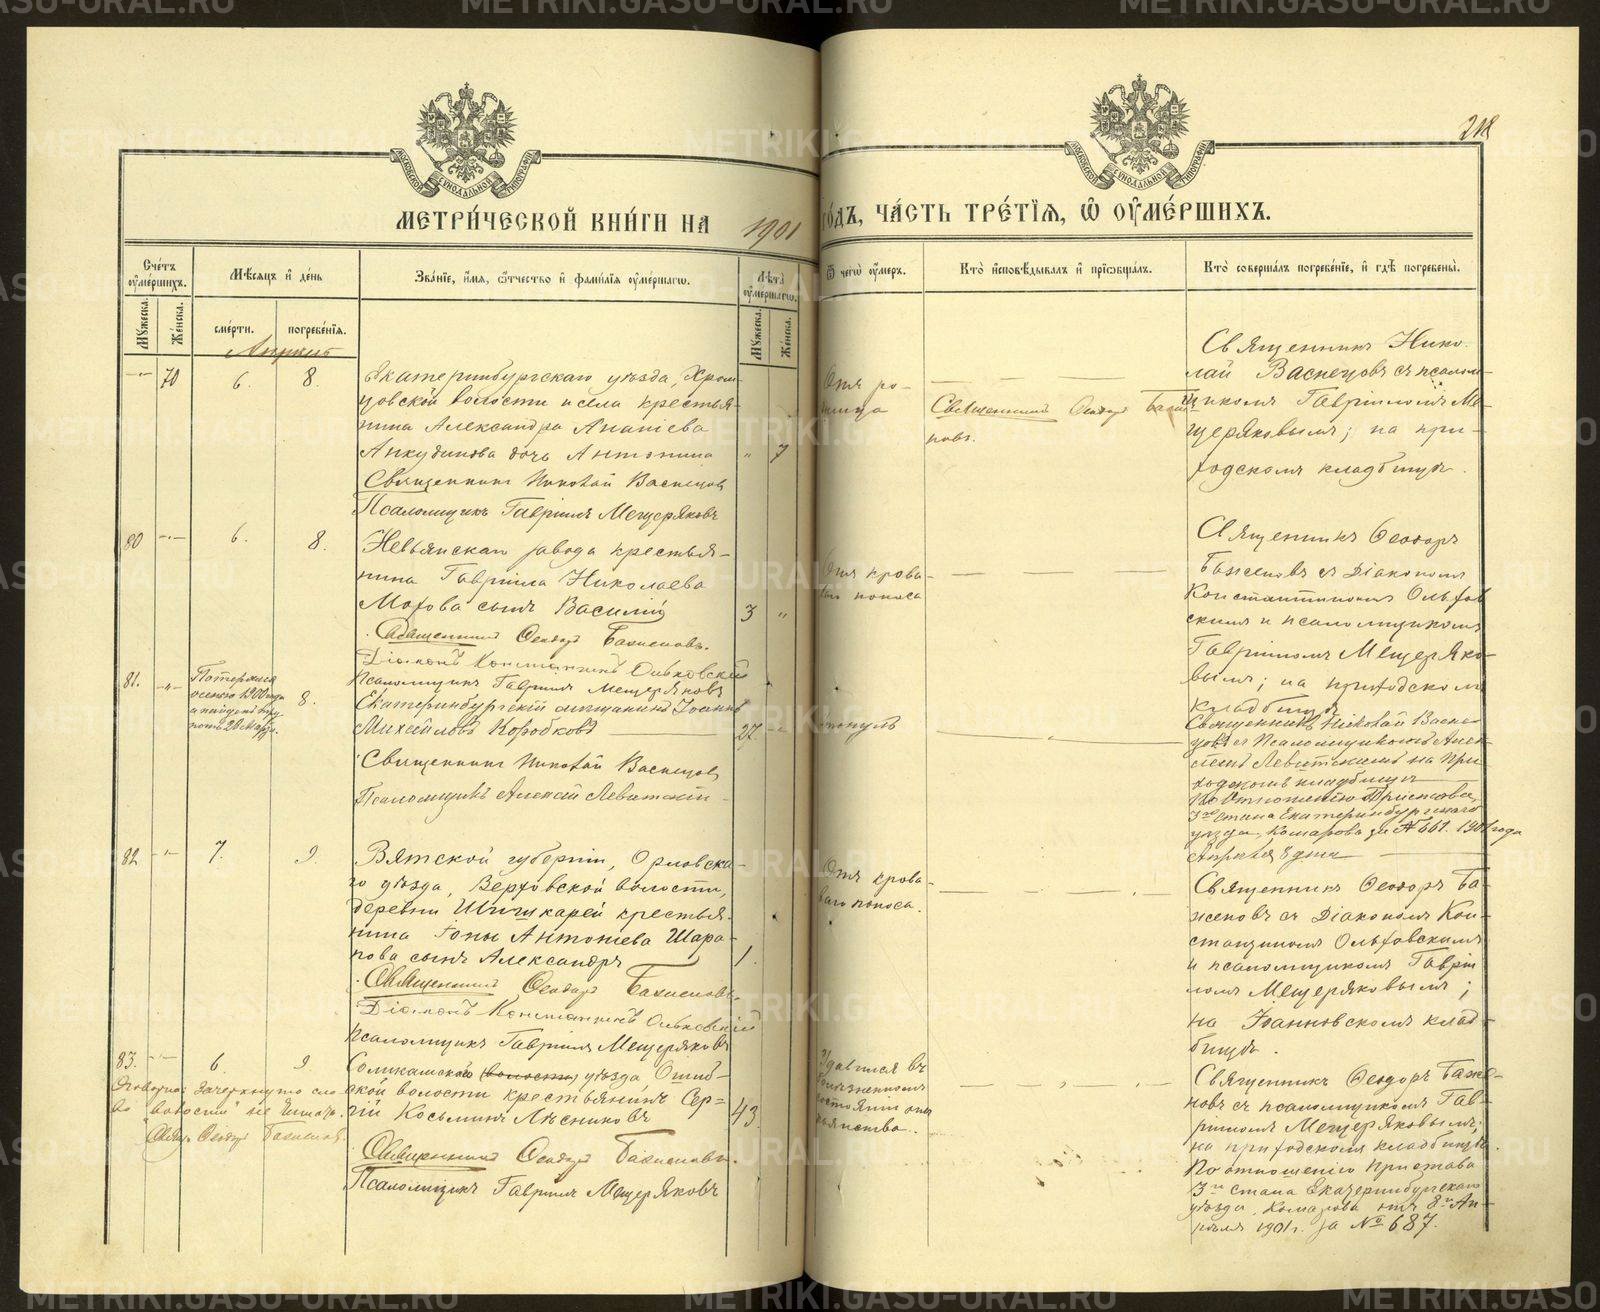 218
МЕТРИ́ЧЕСКОЙ КНИ́ГИ НА 1901 ГО́ДЪ, ЧА́СТЬ ТРЕ́ТІѦ, Ѡ ОУМЕ́РШИХЪ.
Сче́тъ оумéршихъ.
Мужеска.
Же́нска.
Мѣ́сѧцъ и де́нь
сме́рти.
погребе́нїѧ.
Зва́нїе, и́мѧ, ѻтчество и фами́лїѧ оуме́ршагѡ.
Лѣта̀ оуме́ршагѡ.
Мужеска.
Же́нска.
Ѿ чегѡ̀ оу́меръ.
Кто̀ и́сповѣдывалъ и прїѡбща́лъ.
Кто̀ соверша́лъ погребе́нїе, и гдѣ̀ погребены̀.
Апрѣль
70
6.
8.
Екатеринбургскаго уѣзда, Хром-
цовской волости и села крестья-
нина Александра Ананіева
Анкудинова дочь Антонина
7
Священникъ Николай Васнецов
Псаломщикъ Гавріилъ Мещеряковъ
Отъ ро-
димца
Священникъ Ѳеодоръ Баже-
новъ.
Священникъ Нико-
лай Васнецовъ съ псалом-
щикомъ Гавріиломъ Ме-
щеряковымъ; на при-
ходскомъ кладбищѣ.
80
6.
8.
Невьянскаго завода крестья-
нина Гавріила Николаева
Мохова сынъ Василій
3
Священникъ Ѳеодоръ Баженовъ.
Діаконъ Константинъ Ольховскій
Псаломщикъ Гавріилъ Мещеряковъ
Отъ крова-
ваго поноса
Священникъ Ѳеодоръ
Баженовъ съ Діакономъ
Константиномъ Ольхов
скимъ и псаломщикомъ
Гавріиломъ Мещеряко-
вымъ; на приходскомъ
кладбищѣ
81.
Потерялся
осенью 1900 года
а найденъ
20 Марта.
8.
Екатеринбургскій мѣщанинъ Іоаннъ
Михайловъ Коробковъ
27
Священникъ Николай Васнецов
Псаломщикъ Алексій Левитскій
утонулъ
Священникъ Николай Васне-
цовъ съ Псаломщикомъ Алек-
сіемъ Левитскимъ на При-
ходскомъ кладбищѣ
По Отношенію Пристава
3го стана Екатеринбургскаго
уѣзда, Комарова за № 661. 1901 года
Апрѣля 8 дня
82
7.
9.
Вятской губерніи, Орловска-
го уѣзда, Верховской волости,
деревни Шишкарей крестья-
нина Іоны Антоніева Шара-
пова сынъ Александръ
1.
Священникъ Ѳеодоръ Баженовъ.
Діаконъ Константинъ Ольховскій
Псаломщикъ Гавріилъ Мещеряковъ
Отъ крова-
ваго поноса.
Священникъ Ѳеодоръ Ба-
женовъ съ Діакономъ Кон-
стантиномъ Ольховскимъ
и псаломщикомъ Гаврі
иломъ Мещеряковымъ;
на Іоанновскомъ клад-
бищѣ.
83.
6.
9.
Соликамскаго (волости) уѣзда, Ошиб-
ской волости крестьянинъ Сер-
гій Косьминъ Лѣсниковъ
43.
Оговорка: Зачеркнуто сло-
во "волости" не читать.
Свящ. Ѳеодоръ Баженовъ.
Священникъ Ѳеодоръ Баженовъ.
Псаломщикъ Гавріилъ Мещеряковъ
Удавился въ
болѣзненномъ
состояніи отъ
пьянства.
Священникъ Ѳеодоръ Баже-
новъ съ псаломщикомъ Гав-
ріиломъ Мещеряковымъ;
на приходскомъ кладбищѣ.
По отношенію Пристава
3го стана Екатеринбургскаго
уѣзда, Комарова отъ 8го Ап-
рѣля 1901 г. за № 687.
METRIKI.GASO-URAL.RU